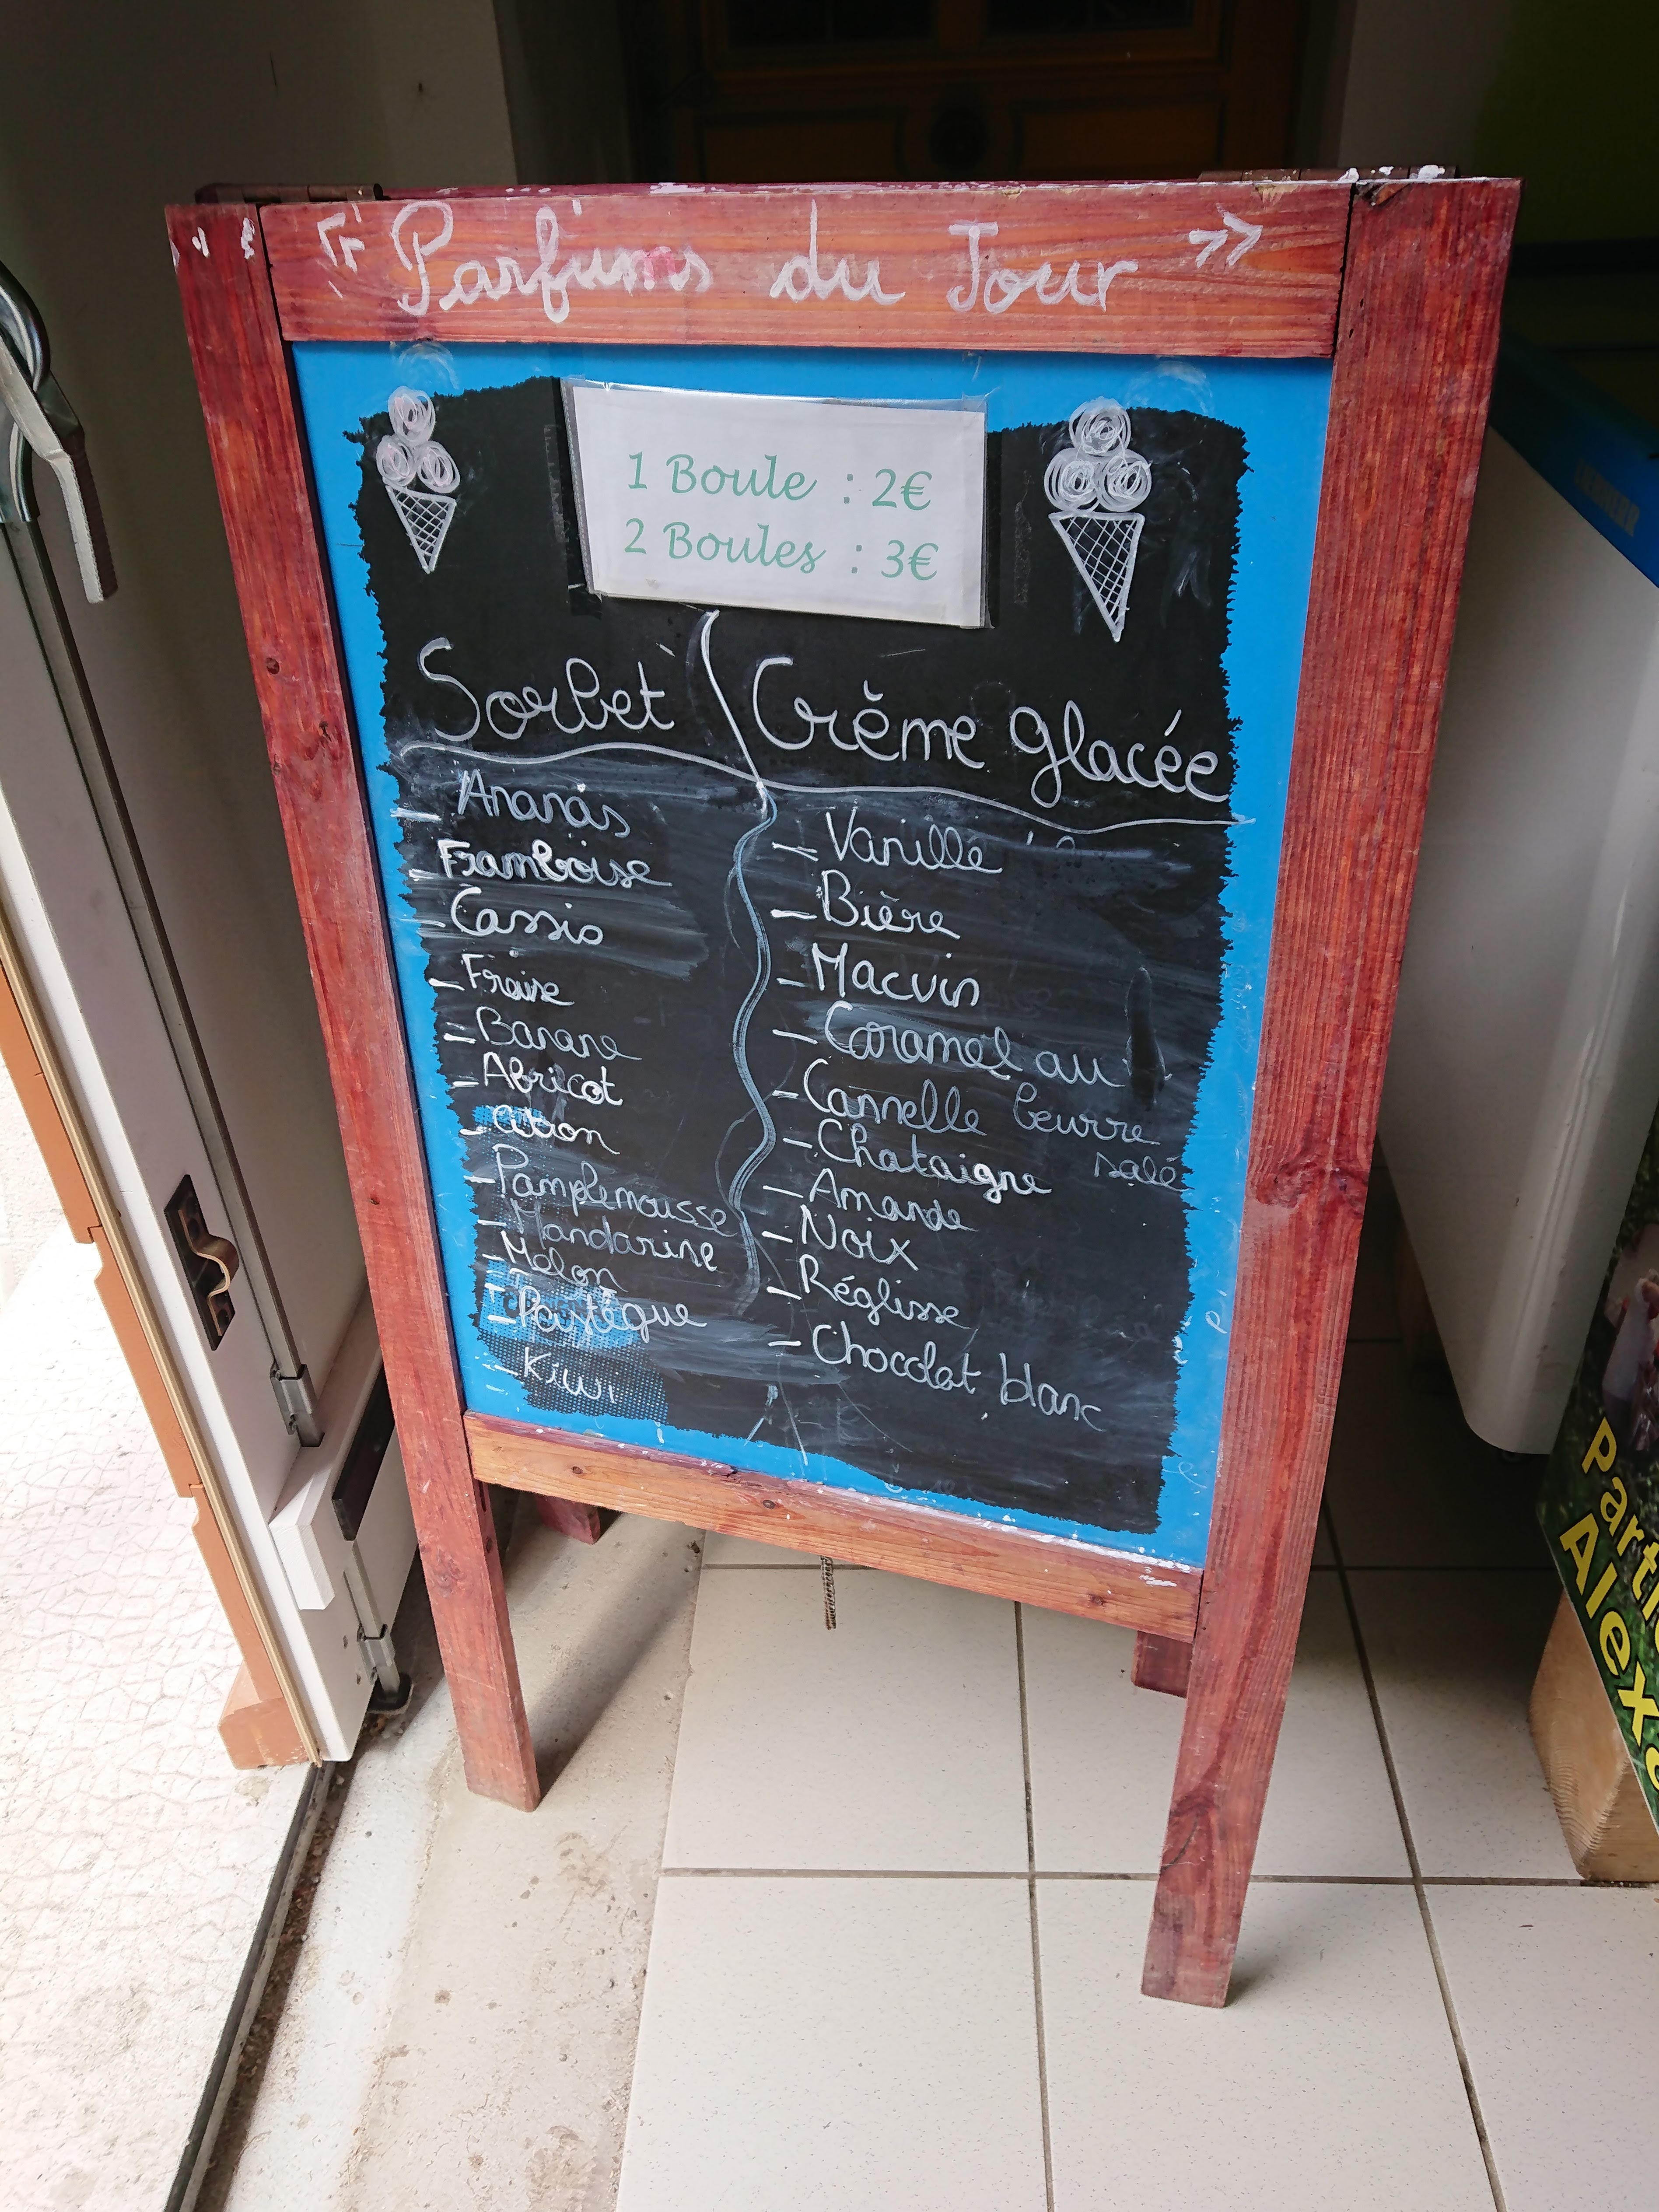 « Parfums du Jour »
1 Boule : 2€
2 Boules : 3€
Sorbet
- Ananas
- Framboise
- Cassis
- Fraise
- Banane
- Abricot
- Citron
- Pamplemousse
- Mandarine
- Melon
- Pastèque
- Kiwi
Crème glacée
- Vanille
- Bière
- Macvin
- Caramel au
beurre
salé
- Cannelle
- Chataigne
- Amande
- Noix
- Réglisse
- Chocolat blanc
LIEBHERR
Parti
Alexa